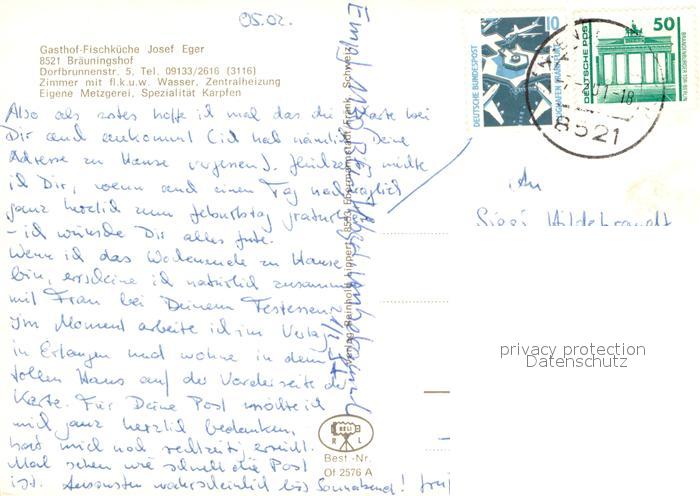 05.02.
Gasthof-Fischküche Josef Eger
8521 Bräuningshof
Dorfbrunnenstr. 5, Tel. 09133/2616 (3116)
Zimmer mit fl.k.u.w. Wasser, Zentralheizung
Eigene Metzgerei, Spezialität Karpfen
Also als erstes hoffe ich mal das die Karte bei
Dir auch ankommt (ich hab nämlich Deine
Adresse zu Hause vergessen). möchte
ich Dir, wenn auch einen Tag nachträglich
ganz herzlich zum Geburtstag gratulieren
- ich wünsche Dir alles Gute.
Wenn ich das Wochenende zu Hause
bin, erscheine ich natürlich zusammen
mit Frau bei Deinem Festessen.
Im Moment arbeite ich im Verlag
in Erlangen und wohne in dem
tollen Haus auf der Vorderseite der
Karte. Für Deine Post möchte ich
mich ganz herzlich bedanken,
hat mich noch rechtzeitig erreicht.
Mal sehen wie schnell die Post
ist. Ansonsten wahrscheinlich bis Sonnabend!
Verlag Reinhold Lippert, 8553 Ebermannstadt/Fränk. Schweiz
RELI
R L
Best.-Nr.
Of 2576 A
DEUTSCHE BUNDESPOST
10
DEUTSCHE POST
50
BRANDENBURGER TOR BERLIN
8521
An
Siggi Hildebrandt
privacy protection
Datenschutz